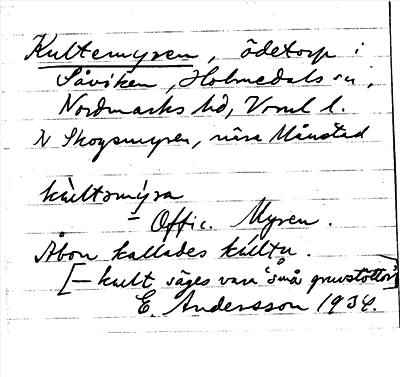 Kultemyren, ödetorp i
Såviken, Holmedals sn,
Nordmarks hd, Vrml l.
N Skogsmyren, nära Månstad
kùltəmýra
Offic. Myren.
Åbon kallades kúltn.
[— kult säges vara 'små gruvstöttor']
E. Andersson 1934.